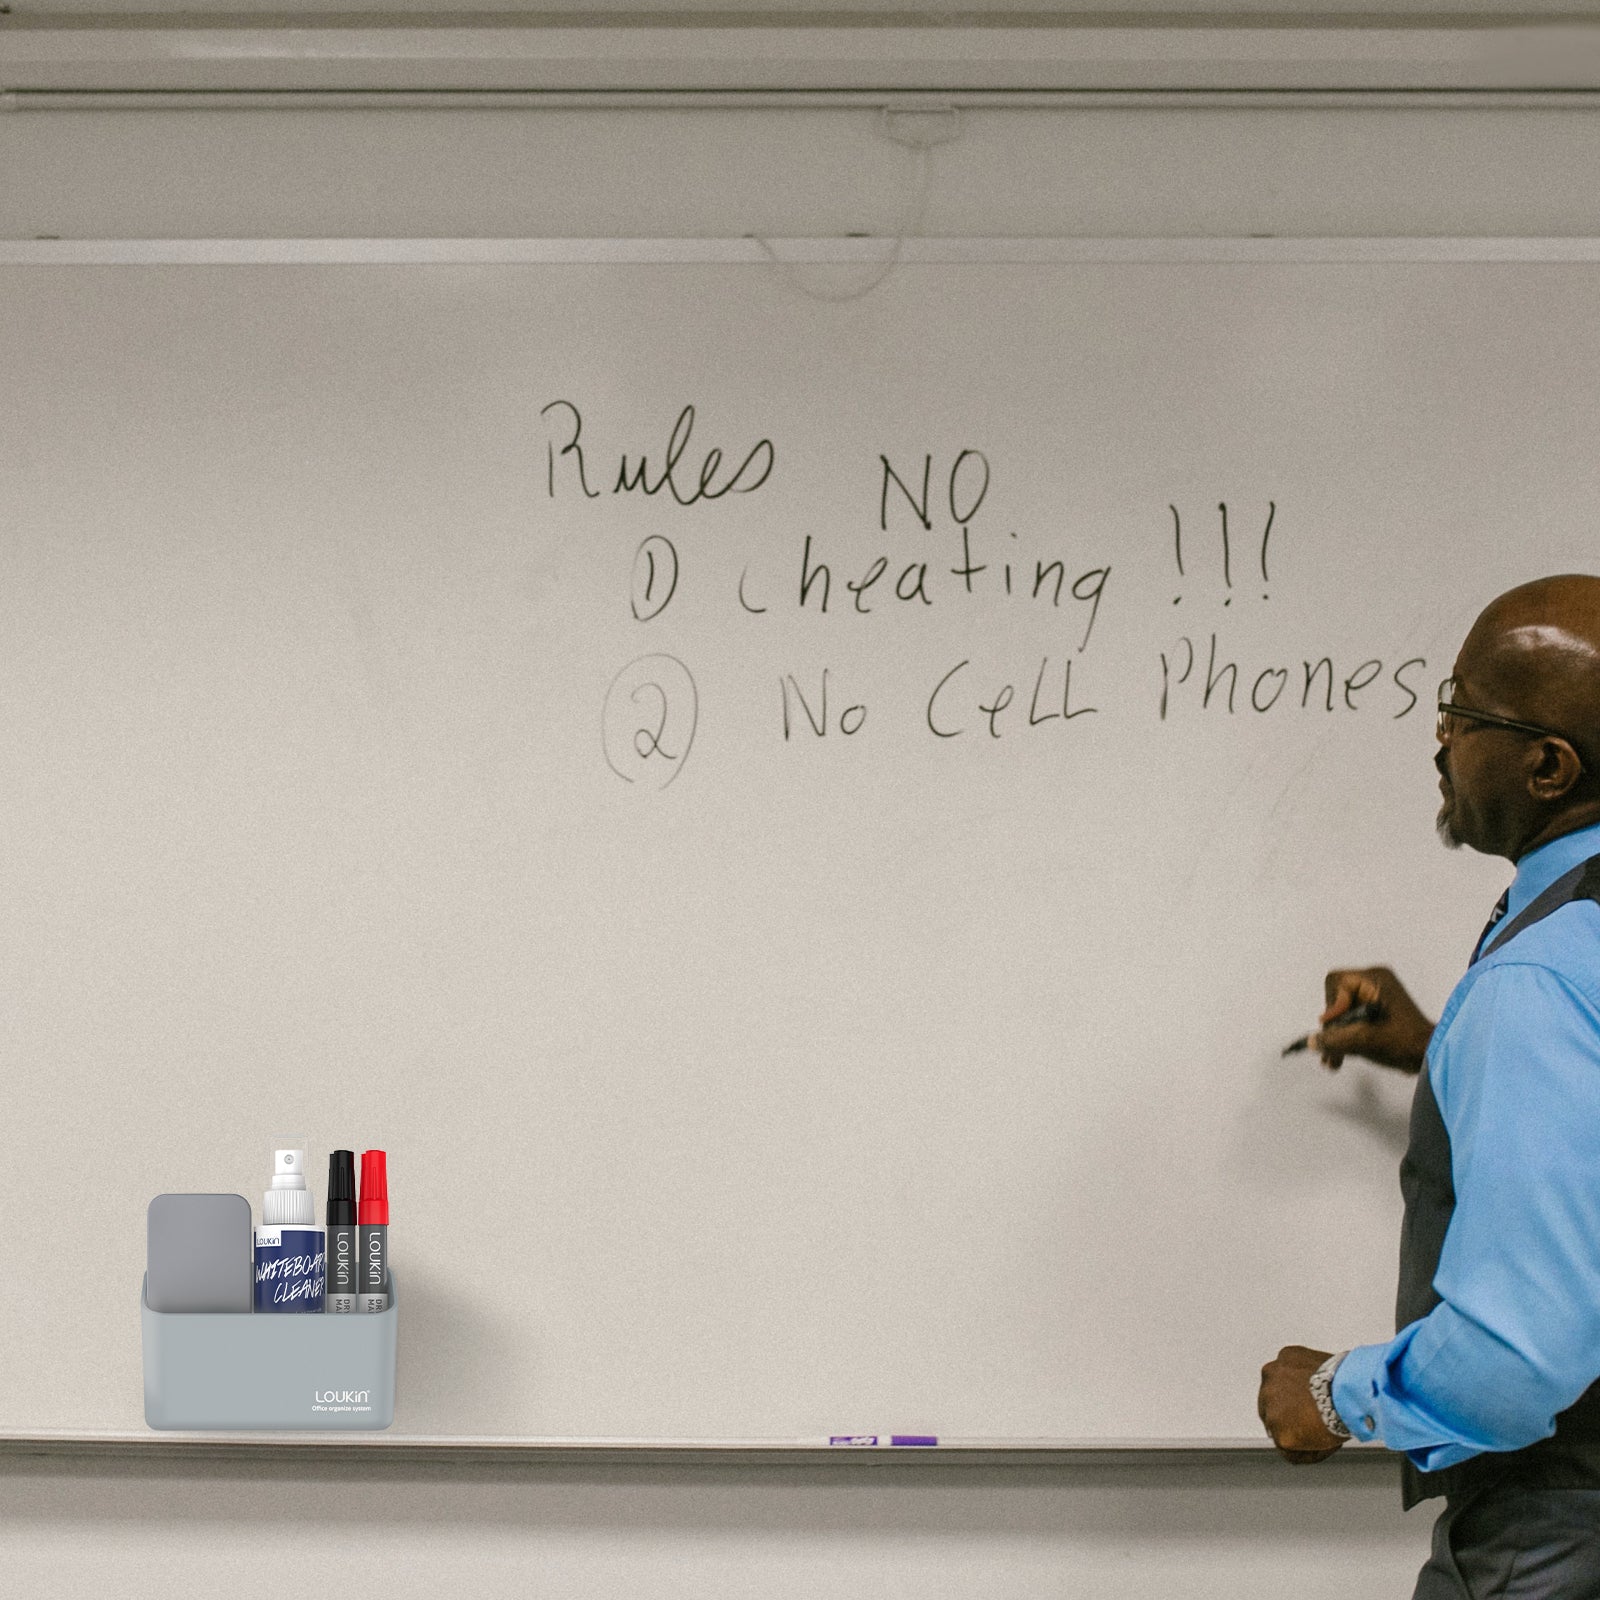 Rules NO
① cheating !!!
② No Cell Phones
LOUKIN
WHITEBOARD
CLEANER
LOUKIN
LOUKIN
LOUKIN
Office organize system